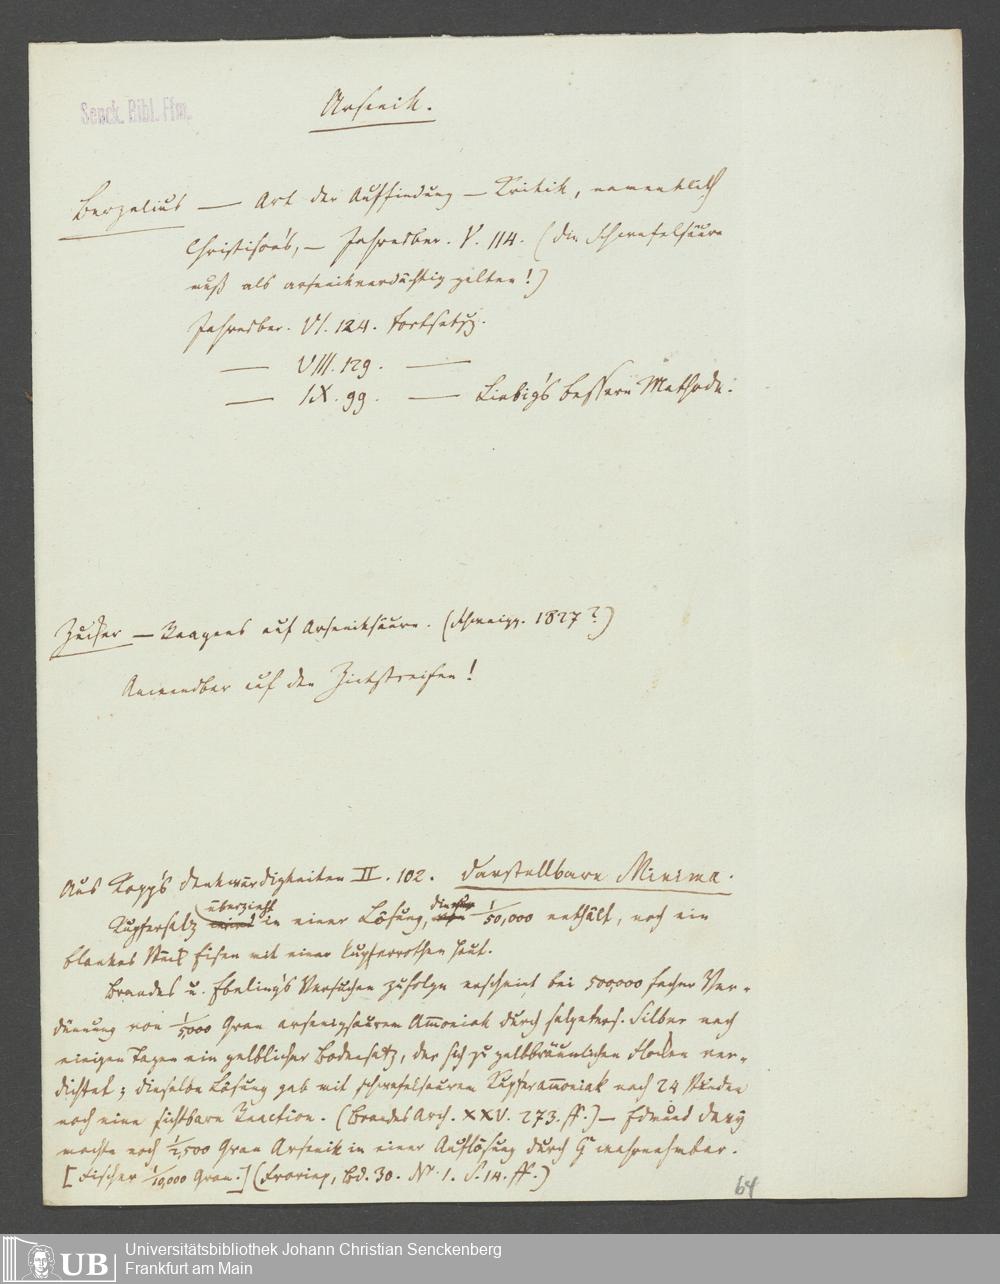 Senck. Bibl. Ffm.
Arsenik.
Berzelius — Art der Auffindung — Kritik, namentlich
Christison's, — Jahresber. V. 114. (die Schwefelsäure
muß als arsenikverdächtig gelten!)
Jahresber. VI. 124. Fortsetzg.
— VIII. 129. —
— IX. 99. — Liebig's bessere Methode.
Zucker — Reagens auf Arseniksäure. (Schweigg. 1827?)
Anwendbar auf den Zinkstreifen!
Aus Kopp's Denkwürdigkeiten II. 102. Darstellbare Minima.
Kupfersatz überzieht in einer Lösung, die nur 1/50,000 enthält, noch ein
blankes Stück Eisen mit einer kupferrothen Haut.
Brandes u. Ebeling's Versuchen zufolge erscheint bei 500,000 facher Ver-
dünnung von 1/5,000 Gran arsenigsaurem Ammoniak durch salpeters. Silber nach
einigen Tagen ein gelblicher Bodensatz, der sich zu gelbbräunlichen Flocken ver-
dichtet; dieselbe Lösung gab mit schwefelsaurem Kupferammoniak nach 24 Stunden
noch eine sichtbare Reaction. (Brandes Arch. XXV. 273. ff.) — Edmund Davy
machte noch 1/2,500 Gran Arsenik in einer Auflösung durch wahrnehmbar.
[Fischer 1/10,000 Gran.] (Froriep, Bd. 30. Nr. 1. S. 14. ff.)
64
UB
Universitätsbibliothek Johann Christian Senckenberg
Frankfurt am Main